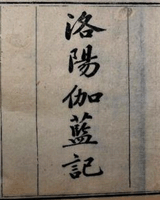 洛陽伽藍記